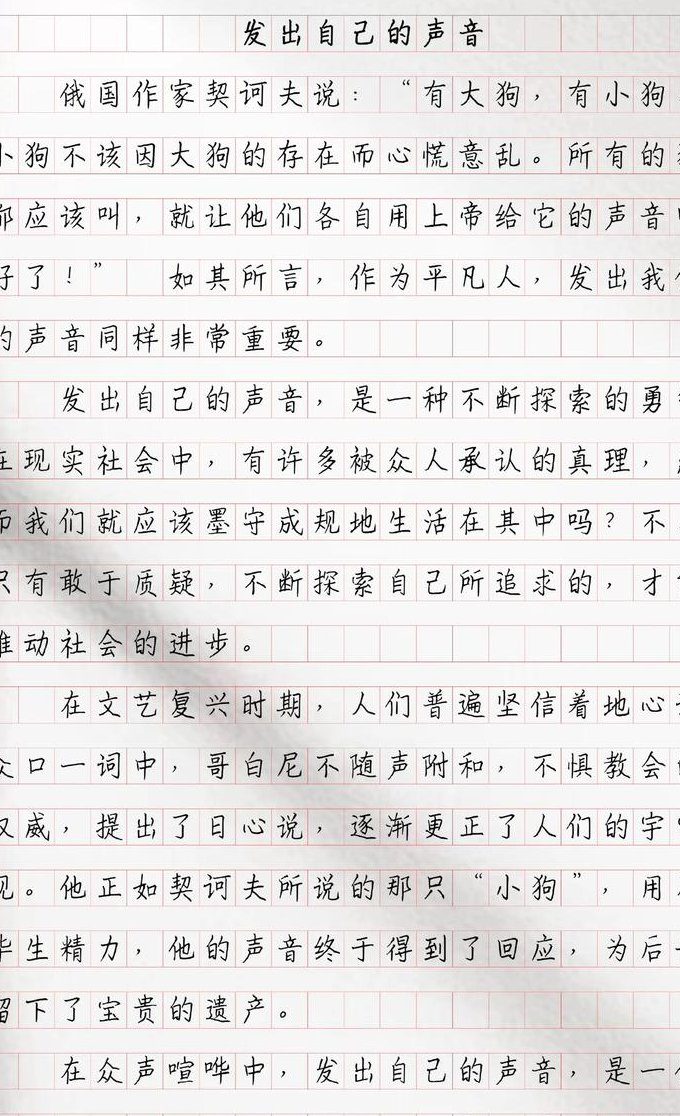 发出自己的声音
俄国作家契诃夫说：“有大狗，有小狗
小狗不该因大狗的存在而心慌意乱。所有的
都应该叫，就让他们各自用上帝给它的声音
好了！” 如其所言，作为平凡人，发出我
的声音同样非常重要。
发出自己的声音，是一种不断探索的勇
在现实社会中，有许多被众人承认的真理，
而我们就应该墨守成规地生活在其中吗？不
只有敢于质疑，不断探索自己所追求的，才
推动社会的进步。
在文艺复兴时期，人们普遍坚信着地心
众口一词中，哥白尼不随声附和，不惧教会
权威，提出了日心说，逐渐更正了人们的宇
观。他正如契诃夫所说的那只“小狗”，用
毕生精力，他的声音终于得到了回应，为后
留下了宝贵的遗产。
在众声喧哗中，发出自己的声音，是一